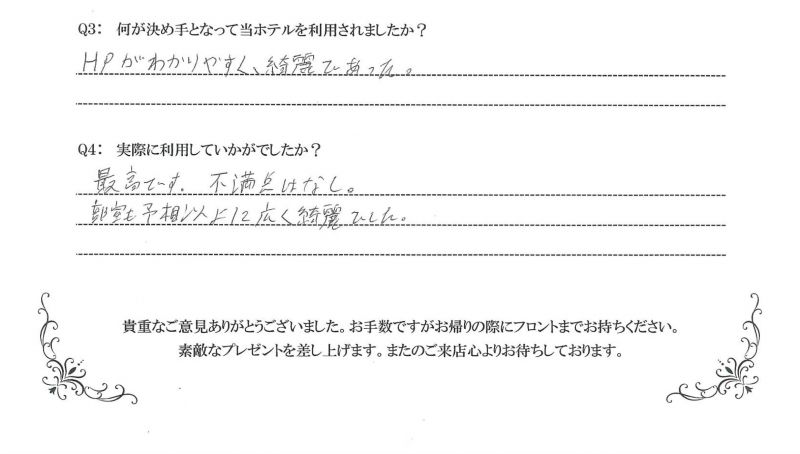 Q3： 何が決め手となって当ホテルを利用されましたか？
HPがわかりやすく、綺麗であった。
Q4： 実際に利用していかがでしたか？
最高です。不満点はなし。
部室も予想以上に広く綺麗でした。
貴重なご意見ありがとうございました。お手数ですがお帰りの際にフロントまでお持ちください。
素敵なプレゼントを差し上げます。またのご来店心よりお待ちしております。